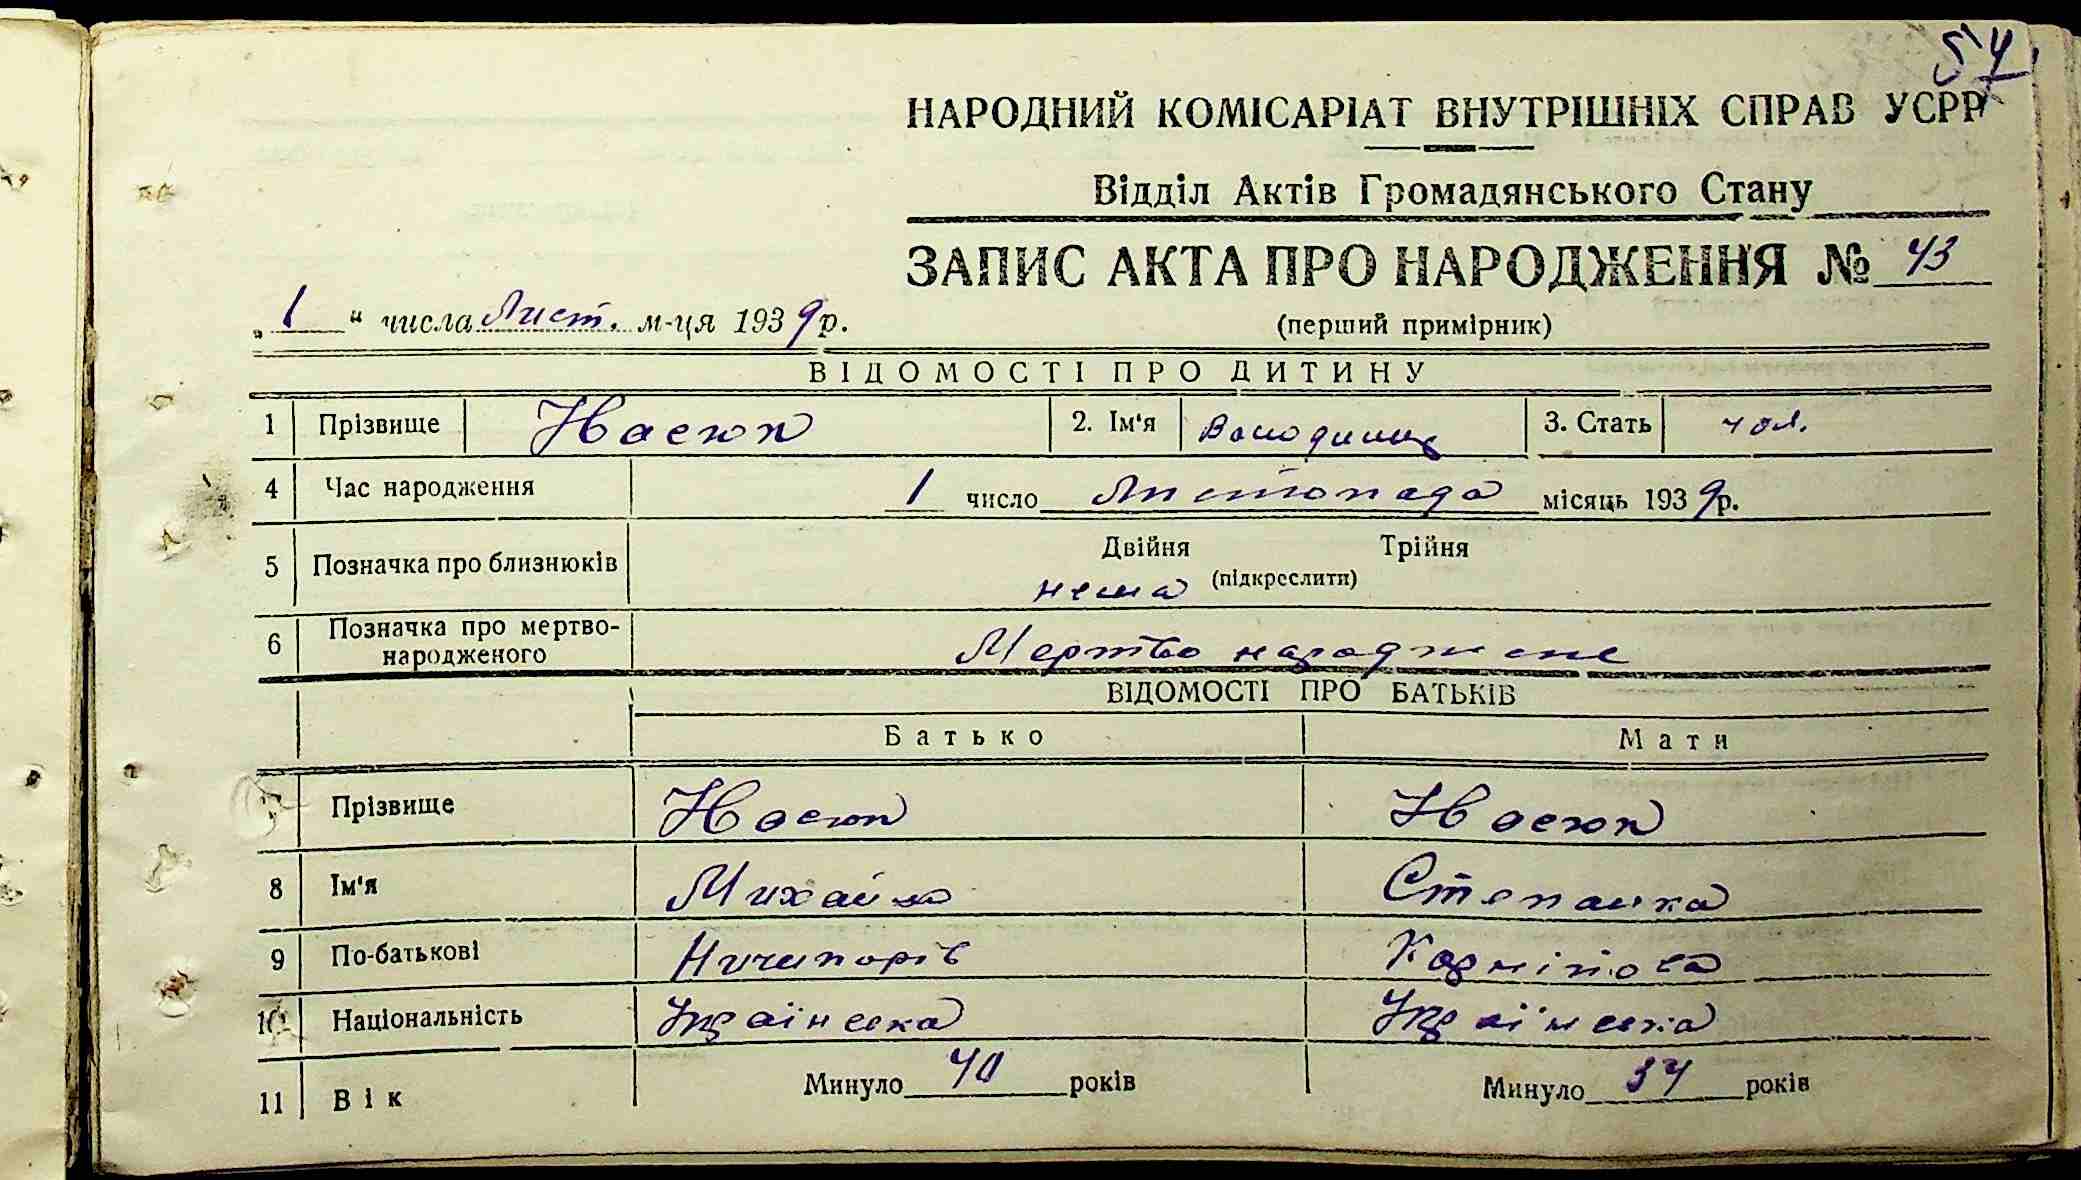 54
НАРОДНИЙ КОМІСАРІАТ ВНУТРІШНІХ СПРАВ УСРР
Відділ Актів Громадянського Стану
ЗАПИС АКТА ПРО НАРОДЖЕННЯ № 43
„1“ числа Лист. м-ця 1939 р.
(перший примірник)
ВІДОМОСТІ ПРО ДИТИНУ
1 Прізвище 2. Ім'я Володимир 3. Стать чол.
4 Час народження 1 число Листопада місяць 1939 р.
5 Позначка про близнюків Двійня Трійня
нема (підкреслити)
6 Позначка про мертво-
народженого Мертво народжене
ВІДОМОСТІ ПРО БАТЬКІВ
Батько Мати
7 Прізвище
8 Ім'я Михайло Степанка
9 По-батькові Ничипорів Корнійова
10 Національність Українська Українська
11 Вік Минуло 40 років Минуло 34 років